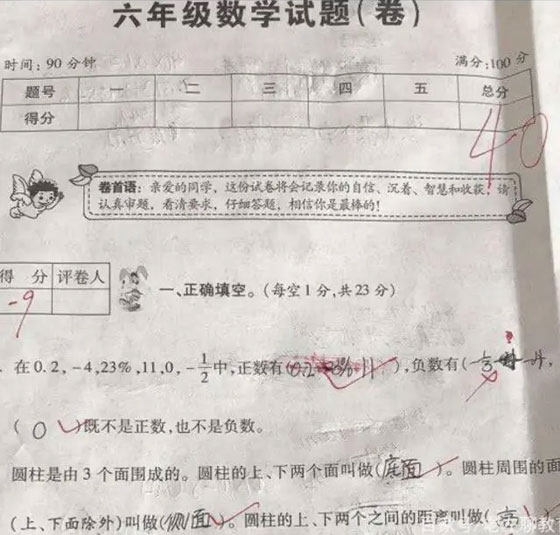 六年级数学试题(卷)
时间:90分钟 满分:100分
题号 一 二 三 四 五 总分
得分 40
卷首语:亲爱的同学,这份试卷将会记录你的自信、沉着、智慧和收获!请
认真审题,看清要求,仔细答题,相信你是最棒的!
得分 评卷人
-9
一、正确填空。(每空1分,共23分)
在0.2,-4,23%,11,0,-1/2中,正数有( ),负数有(
(0)既不是正数,也不是负数。
圆柱是由3个面围成的。圆柱的上、下两个面叫做(底面)。圆柱周围的面
(上、下面除外)叫做(侧面)。圆柱的上、下两个之间的距离叫做(高)